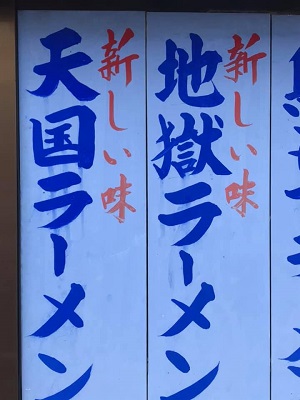 新しい味
地獄ラーメン
新しい味
天国ラーメン